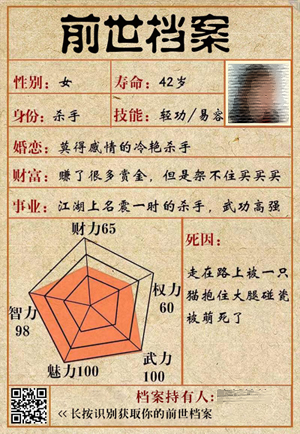 前世档案
性别：女 寿命：42岁
身份：杀手 技能：轻功/易容
婚恋：莫得感情的冷艳杀手
财富：赚了很多赏金，但是架不住买买买
事业：江湖上名震一时的杀手，武功高强
财力65
权力
60
武力
100
魅力100
智力
98
死因：
走在路上被一只
猫抱住大腿碰瓷
被萌死了
档案持有人：
<<长按识别获取你的前世档案